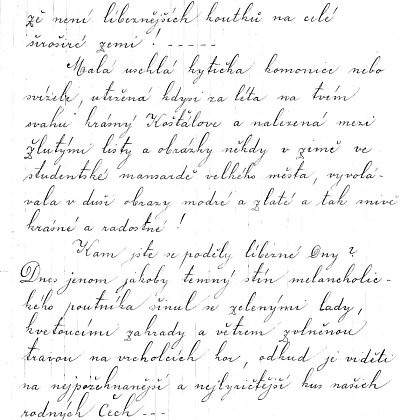 zě není líbeznějších koutků na celé
širošíré zemi! - - - - -
Malá uschlá kytička komonice nebo
svízele, utržená kdysi za léta na tvém
svahu krásný Košťálove a nalezená mezi
žlutými listy a obrázky někdy v zimě ve
studentské mansardě velkého města, vyvolá-
vala v duši obrazy modré a zlaté a tak snivě
krásné a radostné!
Kam jste se poděly líbezné Dny?
Dnes jenom jakoby temný stín melancholic-
kého poutníka šinul se zelenými lady,
kvetoucími zahrady a větrem zvlněnou
travou na vrcholcích hor, odkud je viděti
na nejpožehnanější a nejlyričtější kus našich
rodných Čech - - -